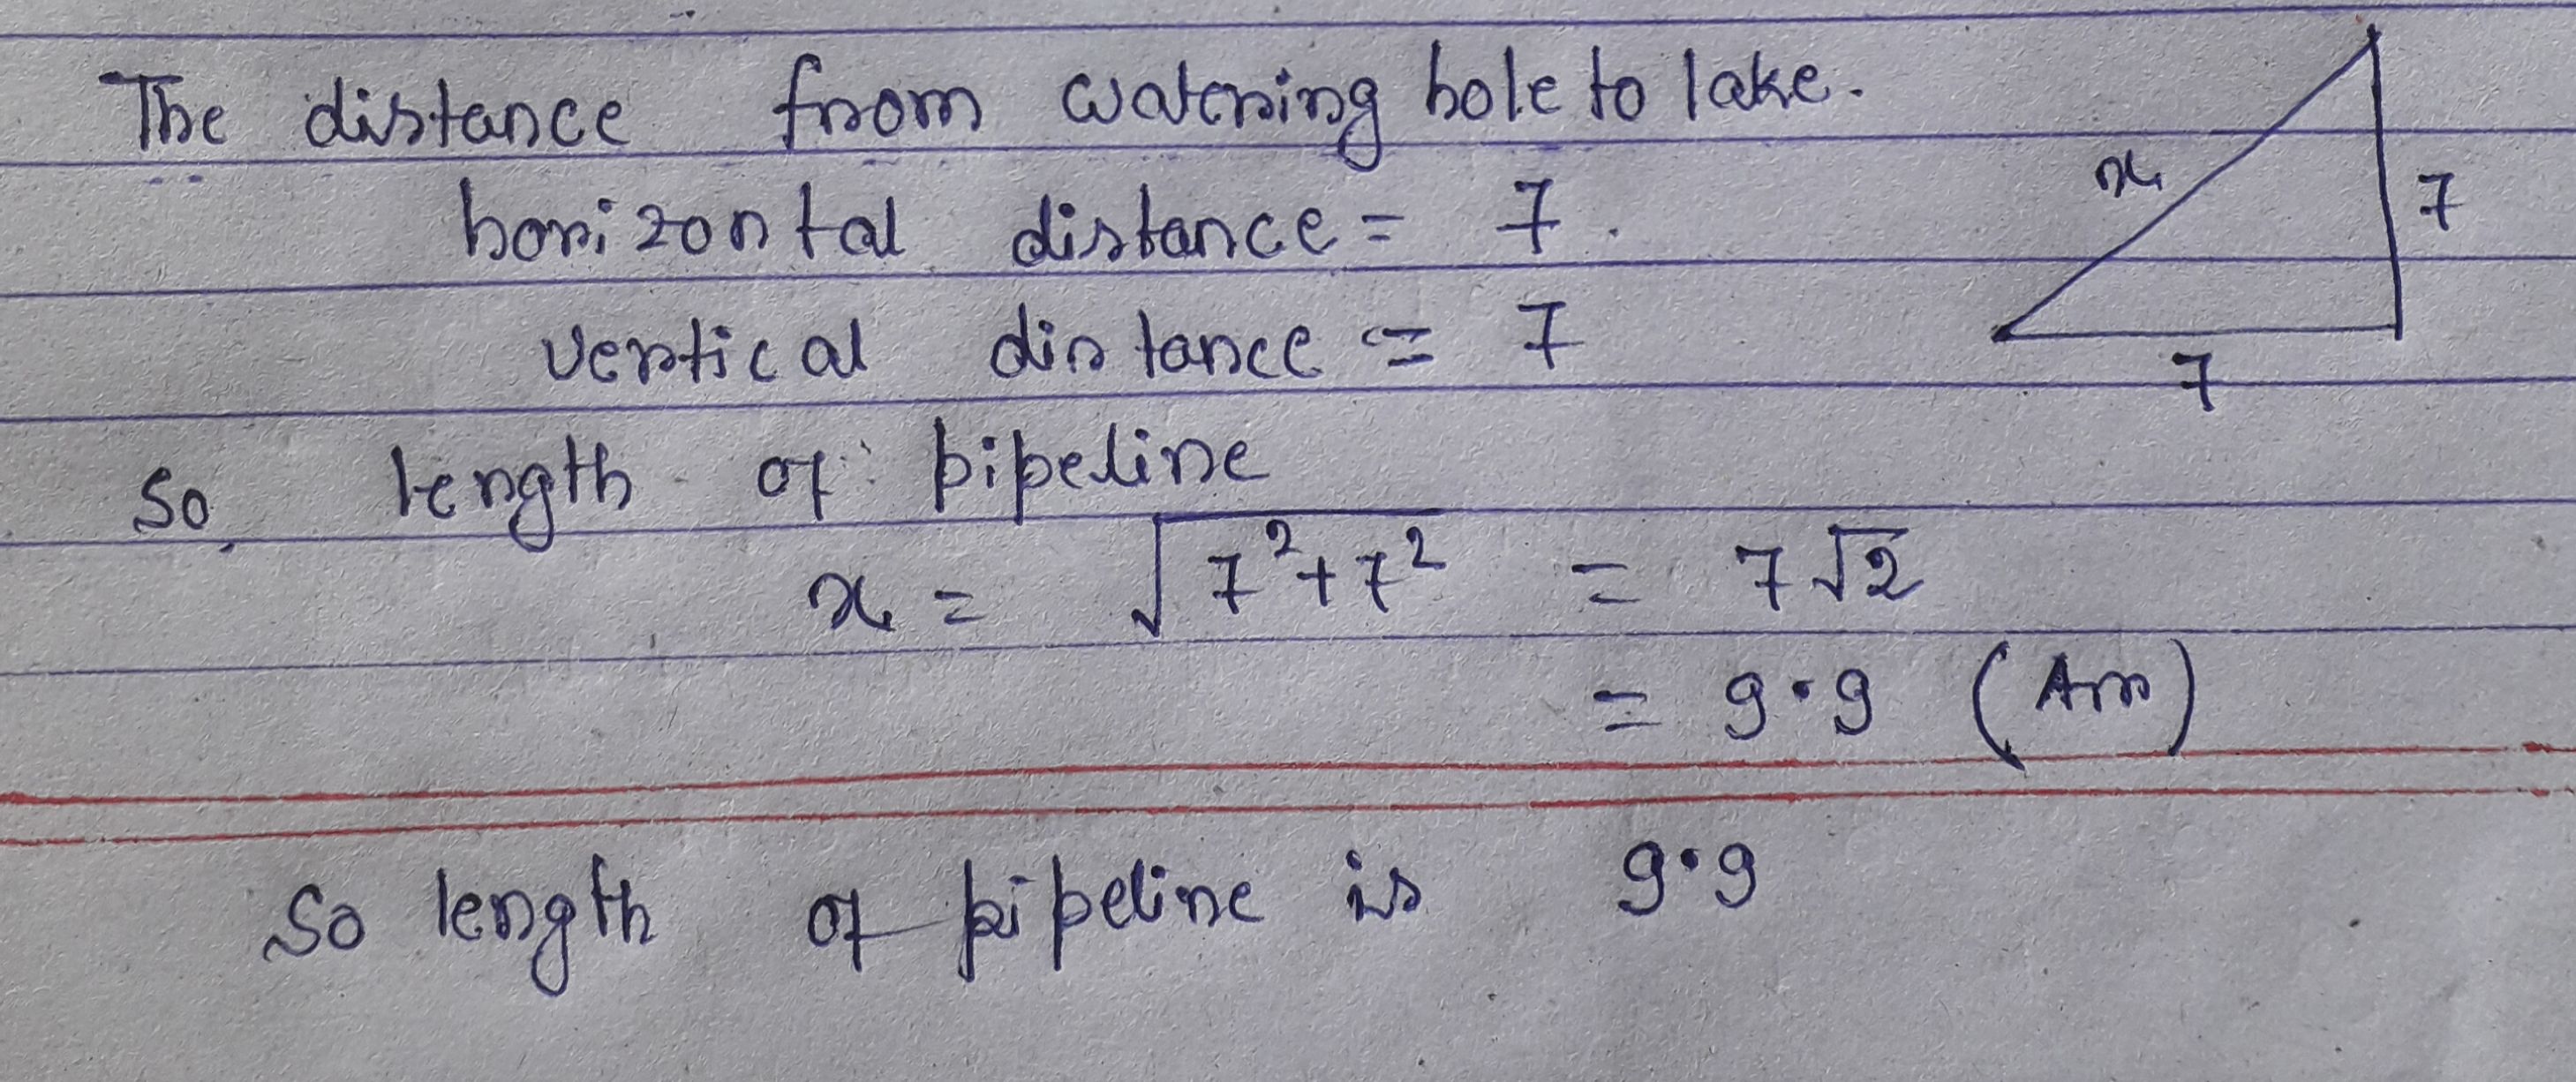 The distance from watering hole to lake.
horizontal distance = 7.
vertical distance = 7
x
7
7
So, length of pipeline
x = √7²+7² = 7√2
= 9.9 (Ans)
So length of pipeline is 9.9